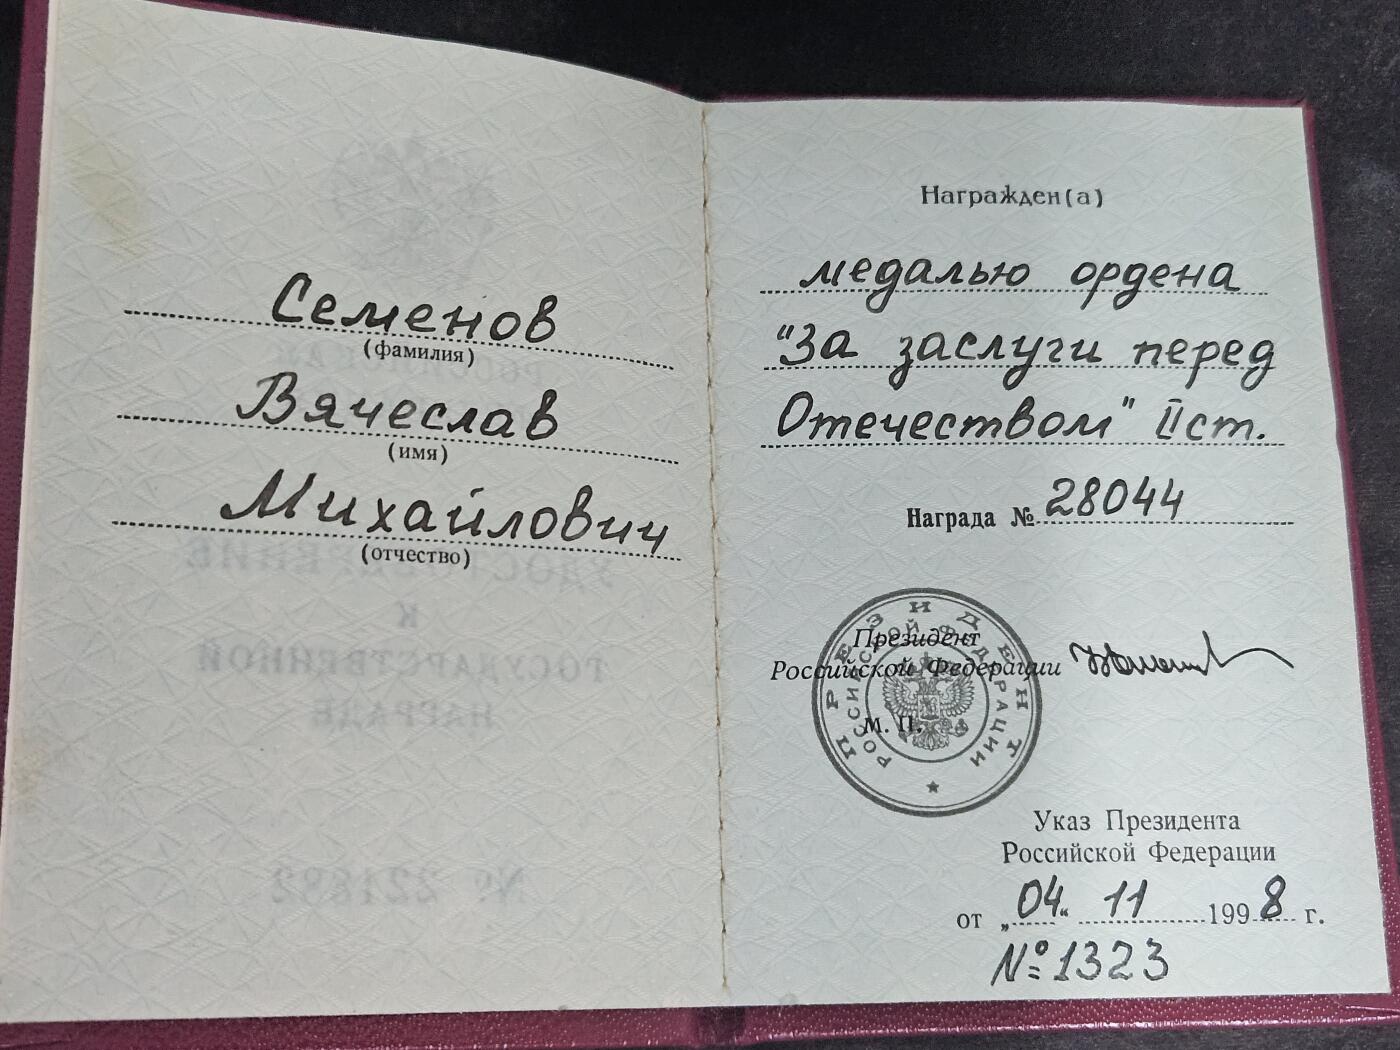 Семенов
(фамилия)
Вячеслав
(имя)
Михайлович
(отчество)
Награжден(а)
медалью ордена
"За заслуги перед
Отечеством" II ст.
Награда № 28044
Президент
Российской Федерации
М. П.
ПРЕЗИДЕНТ
РОССИЙСКОЙ ФЕДЕРАЦИИ
Указ Президента
Российской Федерации
от „04“ 11 1998 г.
№ 1323
УДОСТОВЕРЕНИЕ
К
ГОСУДАРСТВЕННОЙ
НАГРАДЕ